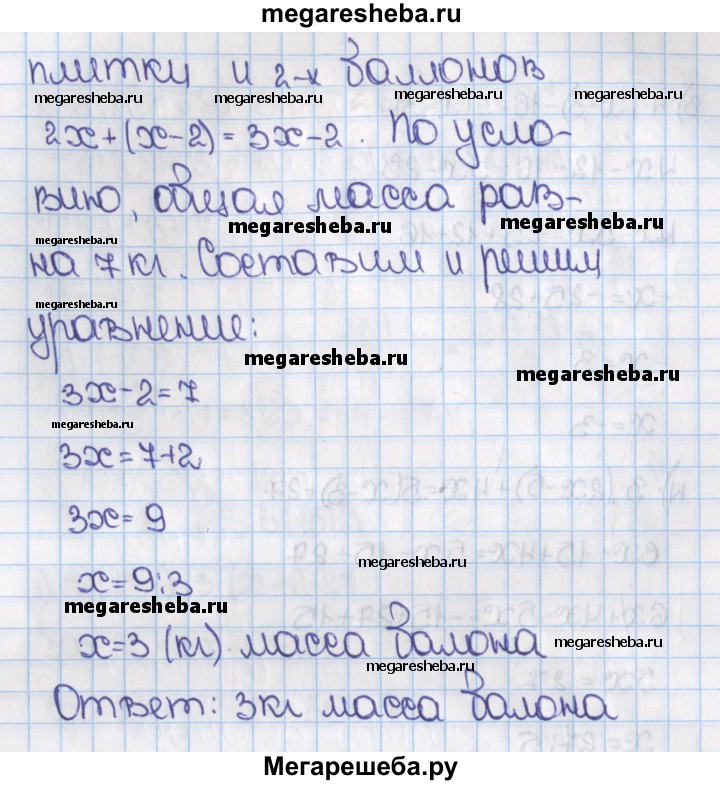 megaresheba.ru
плитки и 2-х баллонов
megaresheba.ru megaresheba.ru megaresheba.ru megaresheba.ru
2x+(x-2)=3x-2. По усло-
megaresheba.ru
вию, общая масса рав-
megaresheba.ru megaresheba.ru
megaresheba.ru
на 7 кг. Составим и решим
megaresheba.ru
уравнение:
megaresheba.ru megaresheba.ru
3x-2=7
megaresheba.ru
3x=7+2
3x=9
megaresheba.ru
x=9:3
megaresheba.ru
x=3 (кг) масса балона
megaresheba.ru
megaresheba.ru
Ответ: 3кг масса балона
Мегарешеба.ру